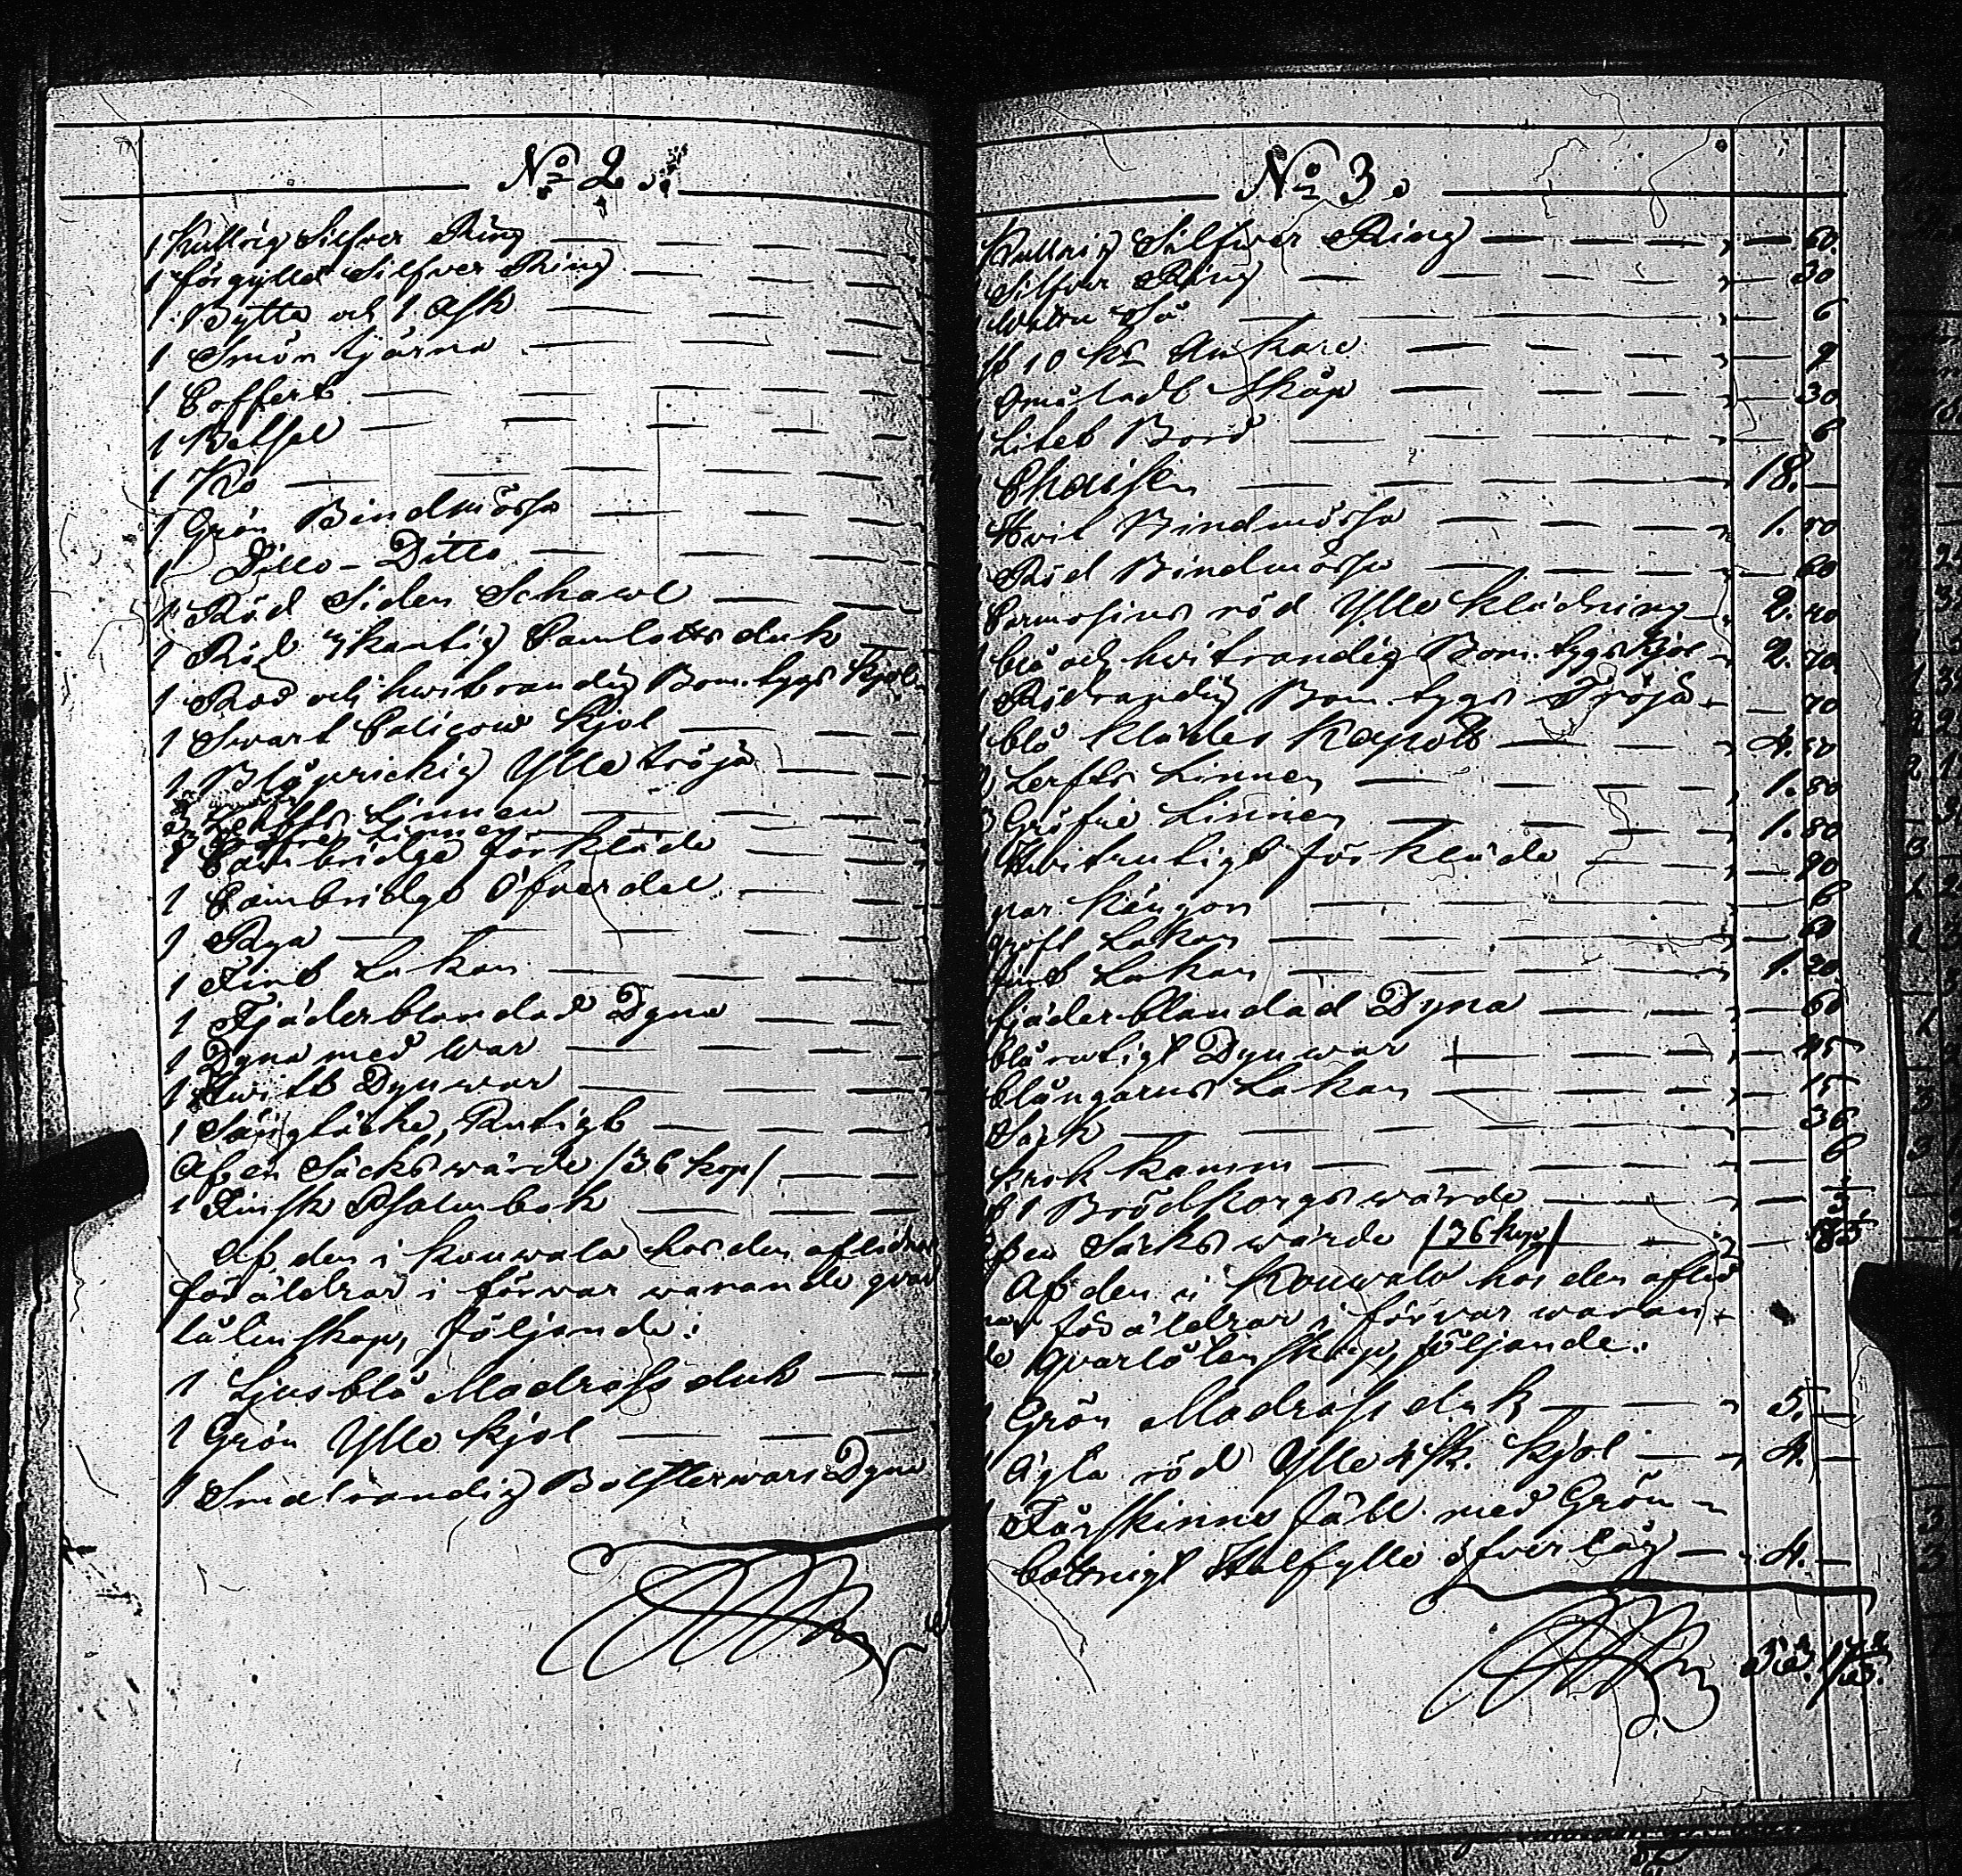 No 2.
1 Kullrig Silfver Ring
1 förgylld Silfver Ring
1 Bytta och 1 Ask
1 Smör kjärna
1 Coffert
1 Betsel
1 Ko
1 Grön Bindmössa
1 Ditto - Ditto
1 Röd Siden Schawl
1 Röd 3kantig Camlotts duk
1 Röd och hwitrandig Bom. tygs Kjol
1 Swart Calicow Kjol
1 Blåprickig Ylle tröja
3 Lerfts Linnen
3 Gröfre Linnen
1 Cambridge förkläde
1 Cambridge Öfverdel
1 Rya
1 Fint Lakan
1 Fjäderblandad Dyna
1 Dyna med War
1 Hwitt Dynwar
1 Sängtäcke, Rutigt
Af en Säcks wärde /36 kop/
1 Finsk Psalmbok
Af den i Kouwala hos den aflidnes
föräldrar i förwar warande qvar
låtenskap, följande:
1 Ljusblå Madrass duk
1 Grön Ylle kjol
1 Smalrandig Bolsterwars Dyna
No 3.
Kullrig Silfwer Ring " — 60.
Silfver Ring " — 30
Watten Så " — 6
10 Ankare " — 9
Omåladt Skåp " — 30
Litet Bord " — 6
Chaisen " 18. —
Hwit Bindmössa " 1. 50
Röd Bindmössa " — 60
Carmosins röd Ylle klädning " 2. 40
blå och hwitrandig Bom. tygs kjol " 2. 70.
Rödrandig Bom. tygs Tröja " — 70
blå klädes Kapott " 4. 50
Lerfts Linnen " 1. 80
3 Gröfre Linnen " 1. 80
Hwitrutigt förkläde " — 90
par Kängor " — 6
groft Lakan " — 60
fint Lakan " 1. 20.
fjäderblandad Dyna " — 60
blårutigt Dynwar " — 45
blångarns Lakan " — 15
Säck " — 36
krok kamm " — 6
1 Brödkorgs wärde " —
en Säcks wärde /36 kop/ " —
Af den i Kouwala hos den aflid
föräldrar i förvar waran-
de qvarlåtenskap, följande:
Grön Madrass duk " 5. —
1 Ägta röd Ylle kjol " 4. —
Fårskinns fäll med Grön
bottnigt Halfylle öfverlag " 4. —